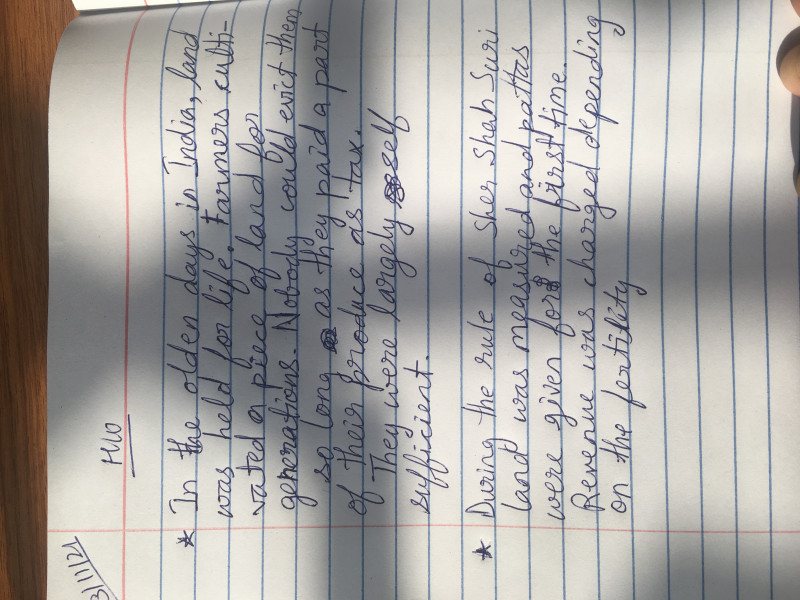 3/11/21
HW
* In the olden days in India, land
was held for life. Farmers culti-
vated a piece of land for
generations. Nobody could evict them
so long as they paid a part
of their produce as tax.
They were largely self
sufficient.
* During the rule of Sher Shah Suri
land was measured and pattas
were given for the first time.
Revenue was charged depending
on the fertility